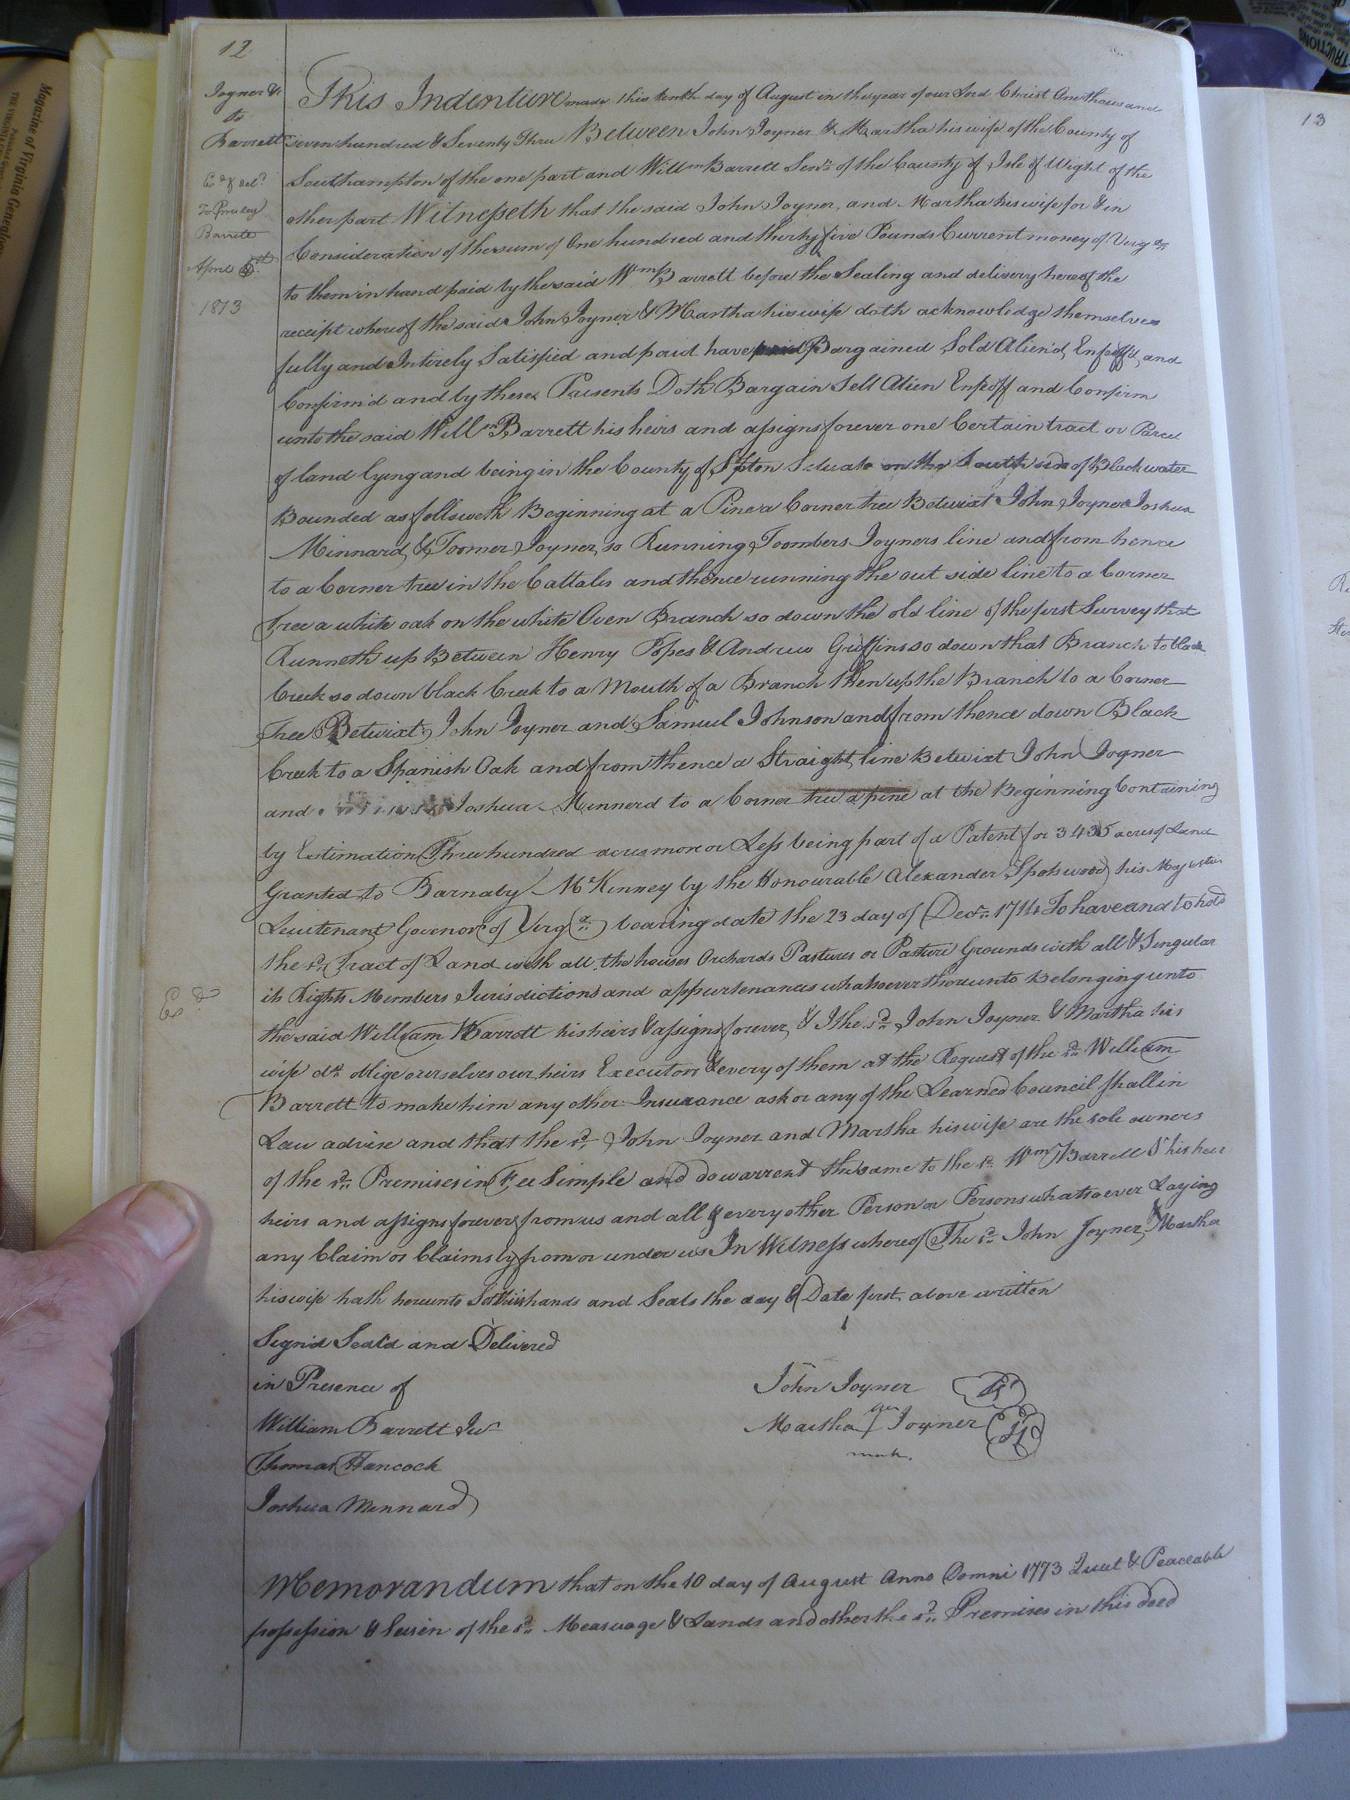 12
Joyner &c
to
Barrett
Ex.d & del.d
To Presley
Barrett
April 5st
1873
This Indenture made this tenth day of August in the year of our Lord Christ One thousand
seven hundred & Seventy Three Between John Joyner & Martha his wife of the County of
Southampton of the one part and Willm Barrett Senr. of the County of Isle of Wight of the
other part Witnesseth that the said John Joyner, and Martha his wife for & in
Consideration of the sum of One hundred and thirty five Pounds Current money of Virga
to them in hand paid by the said Wm Barrett before the Sealing and delivery hereof the
receipt whereof the said John Joyner & Martha his wife doth acknowledge themselves
fully and Intirely Satisfied and paid have paid Bargained Sold Alien'd Enfeoff'd and
Confirm'd and by these Presents Doth Bargain Sell Alien Enfeoff and Confirm
unto the said Willm Barrett his heirs and assigns forever one Certain tract or Parcel
of land lying and being in the County of S.ton Situate on the South side of Blackwater
Bounded as followeth Beginning at a Pine a Corner tree Betwixt John Joyner Joshua
Minnard & Toomer Joyner so Running Toombers Joyners line and from hence
to a Corner tree in the Cattales and thence running the out side line to a Corner
Tree a white oak on the white Oven Branch so down the old line of the first Survey that
Runneth up Between Henry Popes & Andrew Griffins so down that Branch to black
Creek so down black Creek to a Mouth of a Branch then up the Branch to a Corner
Tree Betwixt John Joyner and Samuel Johnson and from thence down Black
Creek to a Spanish Oak and from thence a Straight line Betwixt John Joyner
and Joshua Minnerd to a Corner tree a pine at the Beginning Containing
by Estimation Three hundred acres more or Less being part of a Patent for 3435 acres of Land
Granted to Barnaby McKinney by the Honourable Alexander Spotswood his Majesties
Lieutenant Govenor of Virga bearing date the 23 day of Decr. 1714 To have and to hold
the sd. Tract of Land with all the houses Orchards Pastures or Pasture Grounds with all & Singular
its Rights Members Jurisdictions and appurtenances whatsoever thereunto Belonging unto
Ex.d
the said William Barrett his heirs & assigns forever, & I the sd. John Joyner & Martha his
wife dth. oblige ourselves our heirs Executors & every of them at the Request of the sd. William
Barrett to make him any other Insurance as he or any of the Learned Council shall in
Law advise and that the sd. John Joyner and Martha his wife are the sole owners
of the sd. Premises in Fee Simple and do warrent the same to the sd. Wm Barrett & his heirs
heirs and assigns forever from us and all & every other Person or Persons whatsoever Laying
any Claim or Claims by from or under us In Witness whereof The sd. John Joyner & Martha
his wife hath hereunto Set their hands and Seals the day & Date first above written
Sign'd Seal'd and Delivered
in Presence of
William Barrett Jur
Thomas Hancock
Joshua Minnard
John Joyner
her
Martha Joyner
mark.
Memorandum that on the 10 day of August Anno Domni 1773 Quiet & Peaceable
possession & Seisin of the sd. Measuage & Lands and other the sd. Premises in this deed
13
Magazine of Virginia Genealogy